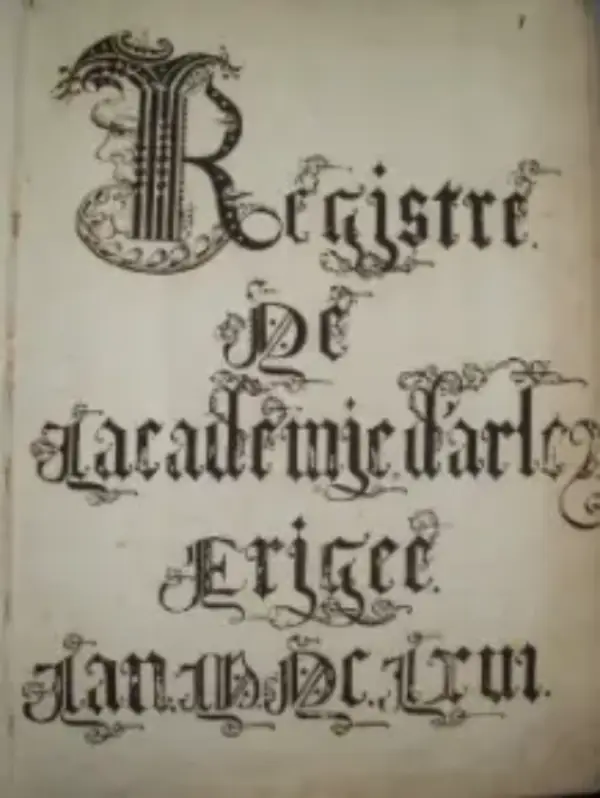 1
Registre.
De
Lacademie.d'arles
Erigee.
Lan.M.Dc.Lxvi.